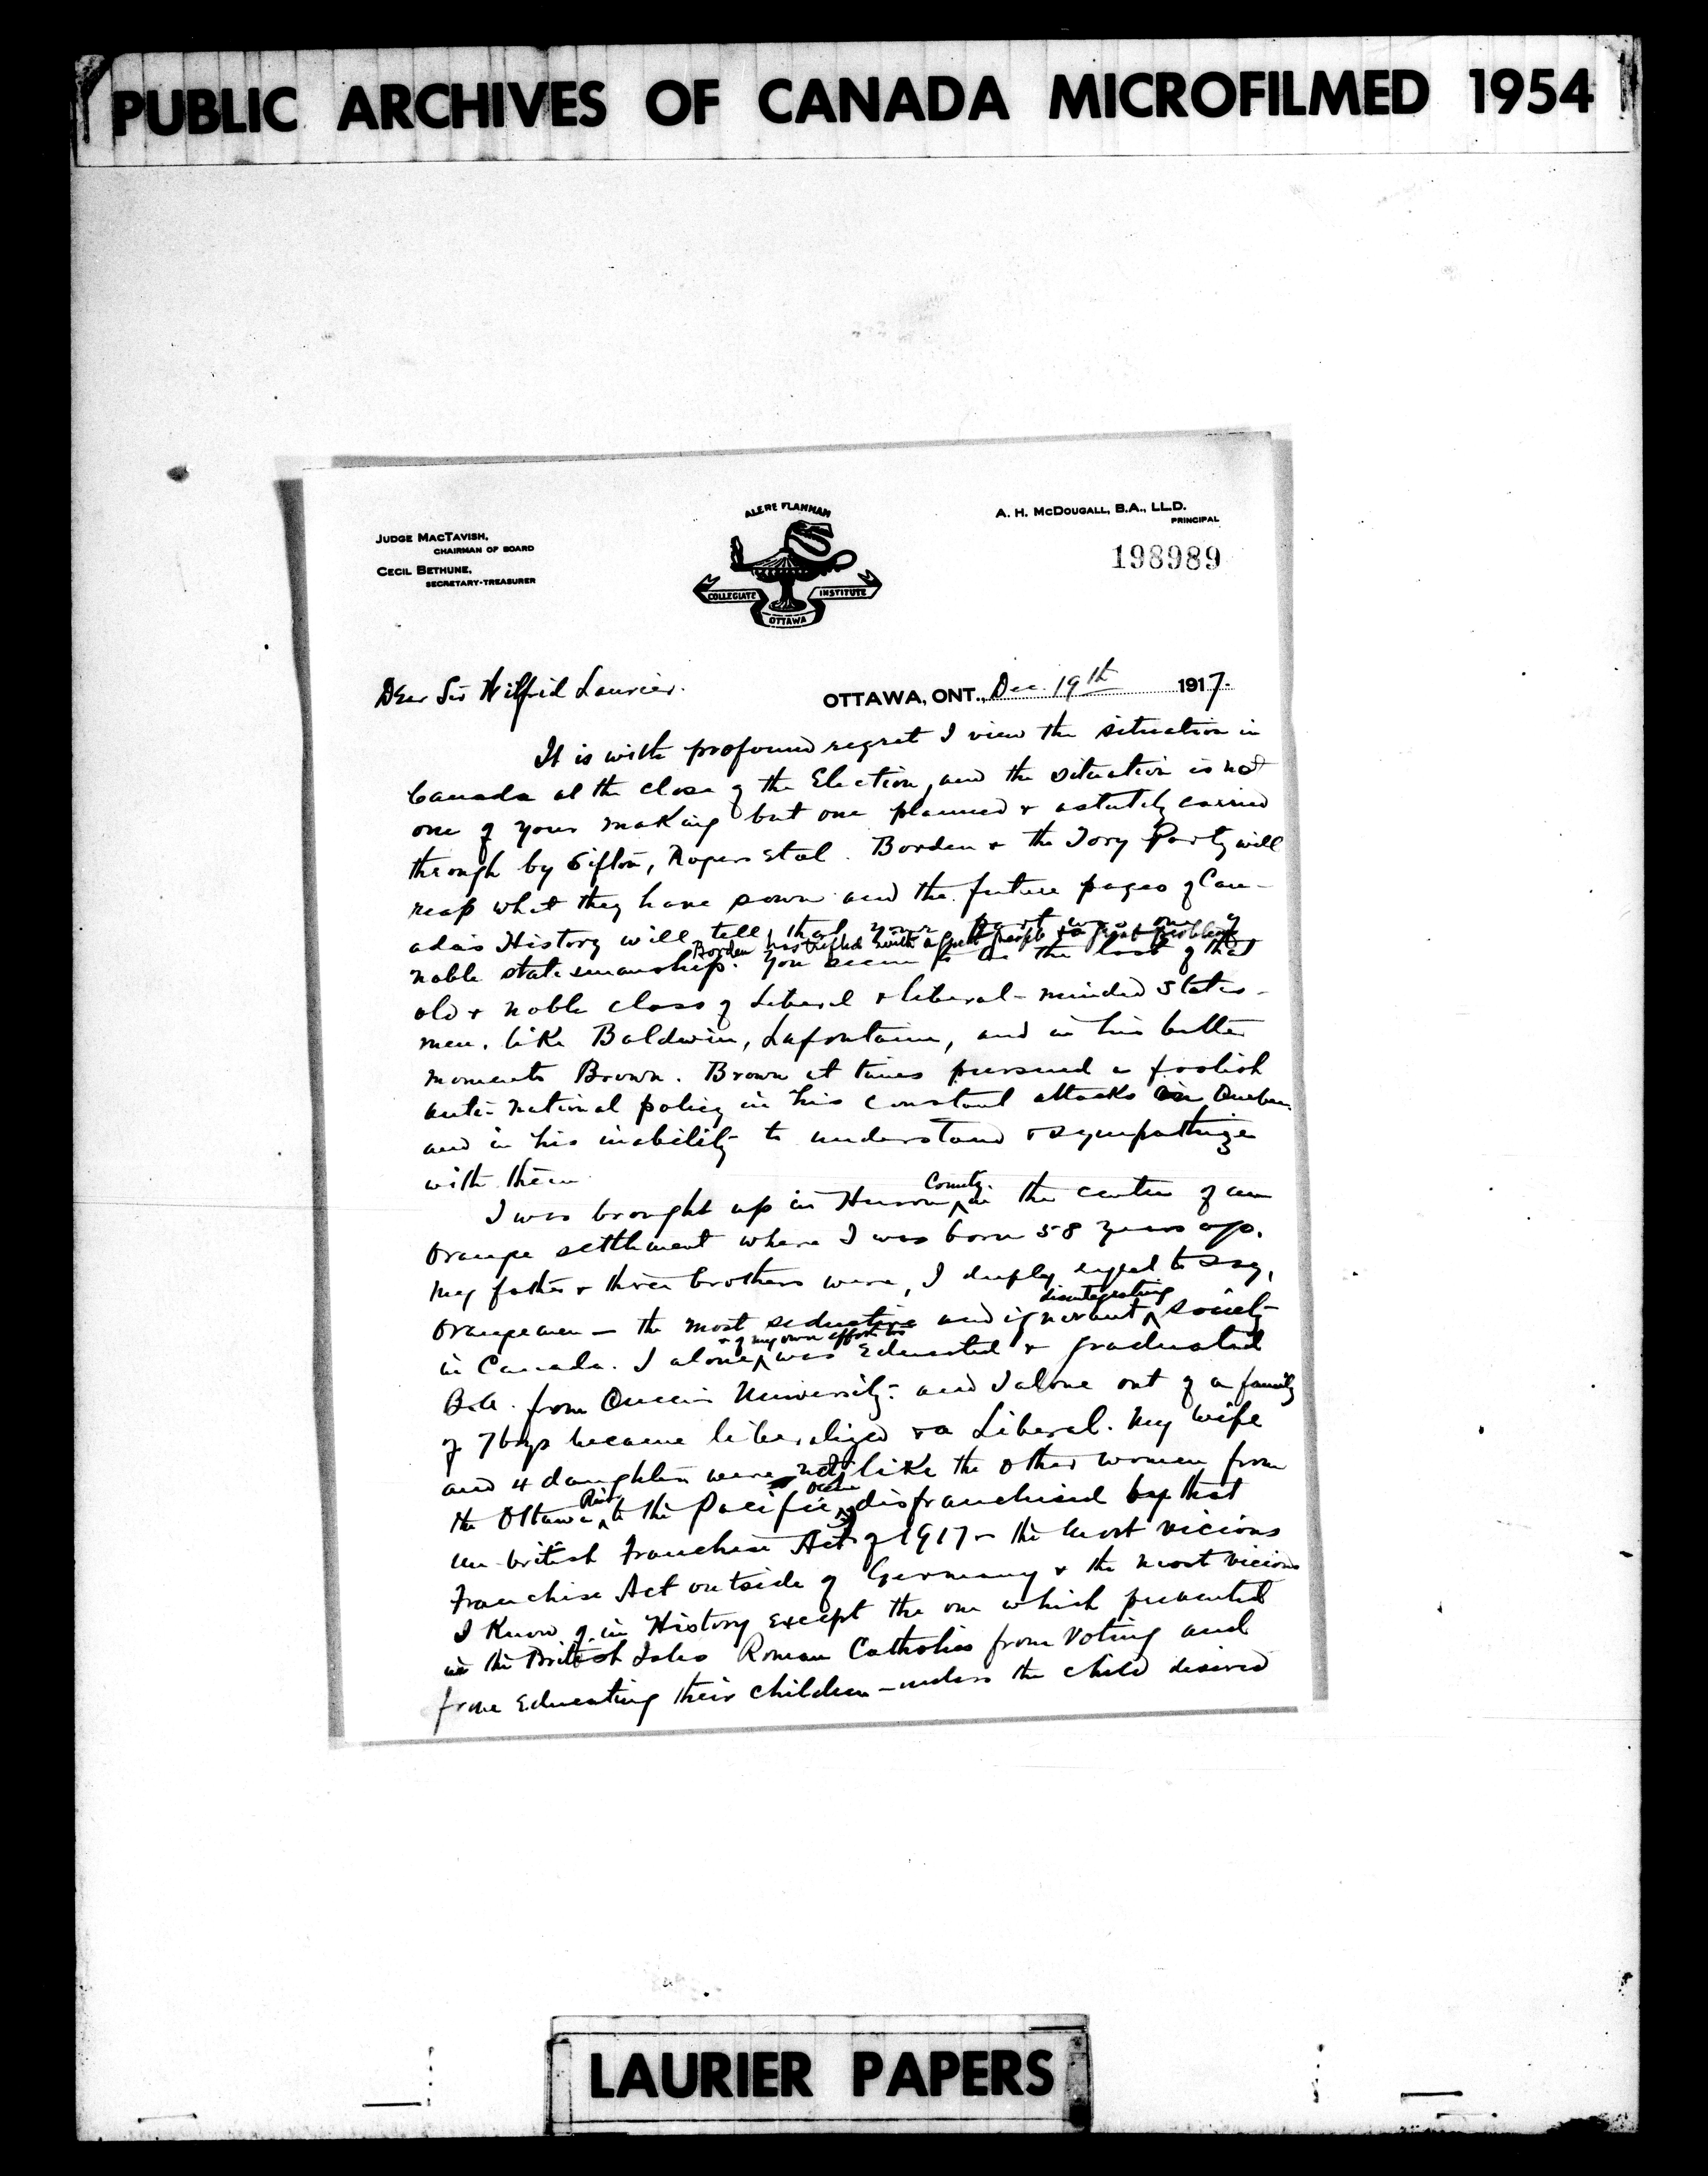 PUBLIC ARCHIVES OF CANADA MICROFILMED 1954
JUDGE MACTAVISH,
CHAIRMAN OF BOARD
CECIL BETHUNE,
SECRETARY-TREASURER
ALERE FLAMMAM
COLLEGIATE INSTITUTE
OTTAWA
A. H. McDOUGALL, B.A., LL.D.
PRINCIPAL
198989
Dear Sir Wilfrid Laurier.
OTTAWA, ONT., Dec. 19th 1917.
It is with profound regret I view the situation in
Canada at the close of the Election, and the situation is not
one of your making but one planned & astutely carried
through by Sifton, Rogers et al. Borden & the Tory Party will
reap what they have sown and the future pages of Can-
ada's History will tell that your part was one of
Borden has trifled with a great people & a great problem
noble statesmanship. You seem to be the last of that
old & noble class of Liberal & liberal-minded States-
men, like Baldwin, Lafontaine, and in his better
moments Brown. Brown at times pursued a foolish
anti-national policy in his constant attacks on Quebec
and in his inability to understand & sympathize
with them
I was brought up in Huron County in the centre of an
Orange settlement where I was born 58 years ago.
My father & three brothers were, I deeply regret to say,
Orangemen — the most seductive and ignorant disintegrating society
in Canada. I alone & of my own effort was Educated & graduated
B.A. from Queen's University. and I alone out of a family
of 7 boys became liberalized & a Liberal. My wife
and 4 daughters were not like the other women from
the Ottawa River to the Pacific Ocean disfranchised by that
un-british Franchise Act of 1917 — the most vicious
Franchise Act outside of Germany & the most vicious
I know of in History except the one which prevented
in the British Isles Roman Catholics from voting and
from Educating their children — unless the child desired
LAURIER PAPERS